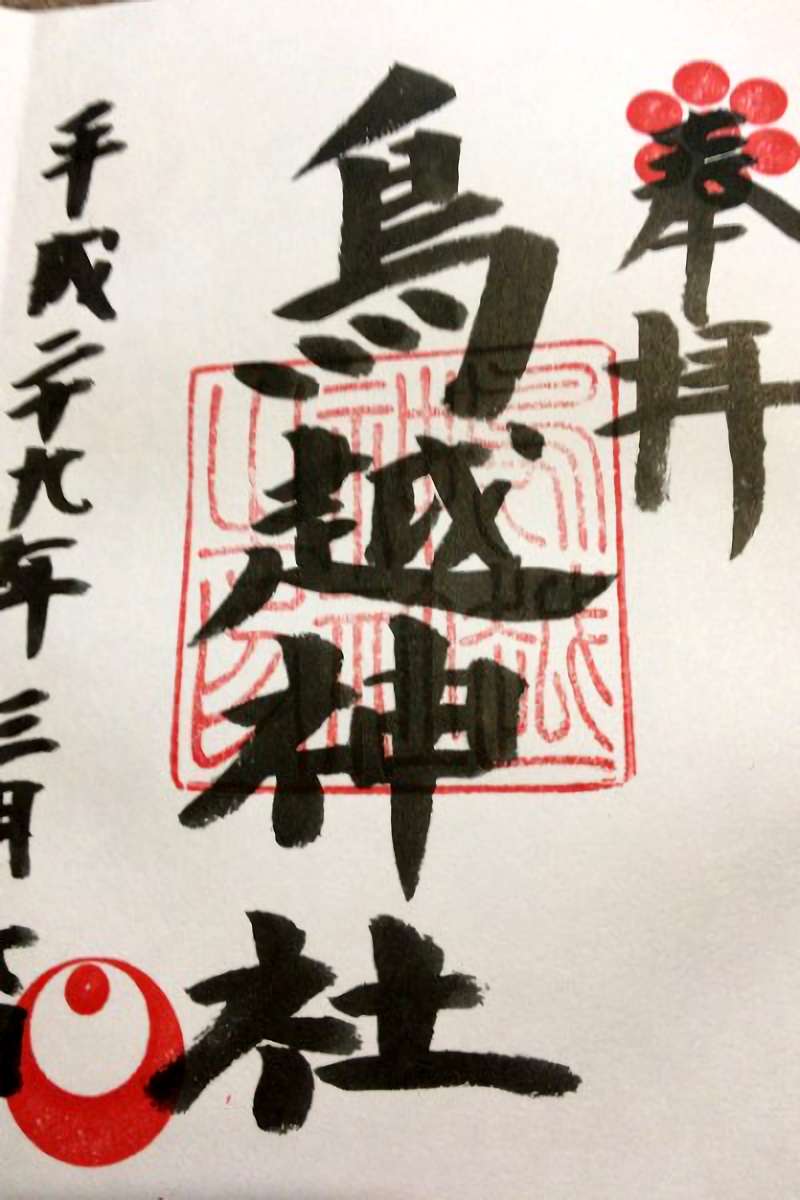 奉拝
鳥越神社
平成二十九年三月